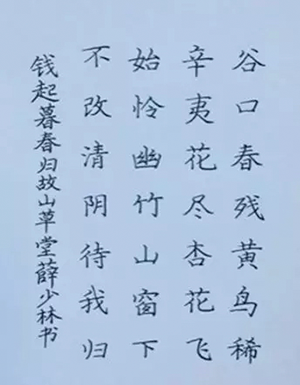 谷口春残黄鸟稀
辛夷花尽杏花飞
始怜幽竹山窗下
不改清阴待我归
钱起暮春归故山草堂薛少林书